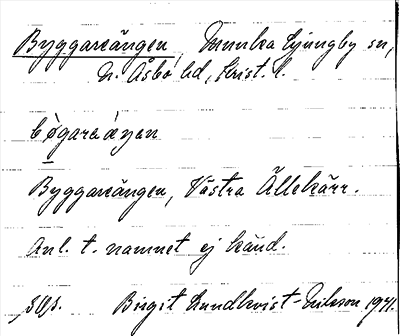 Byggareängen, Munka Ljungby sn,
N. Åsbo hd, Krist. l.
Byggareängen, Västra Ällekärr.
Anl. t. namnet ej känd.
Birgit Lundkvist-Erikson 1941.